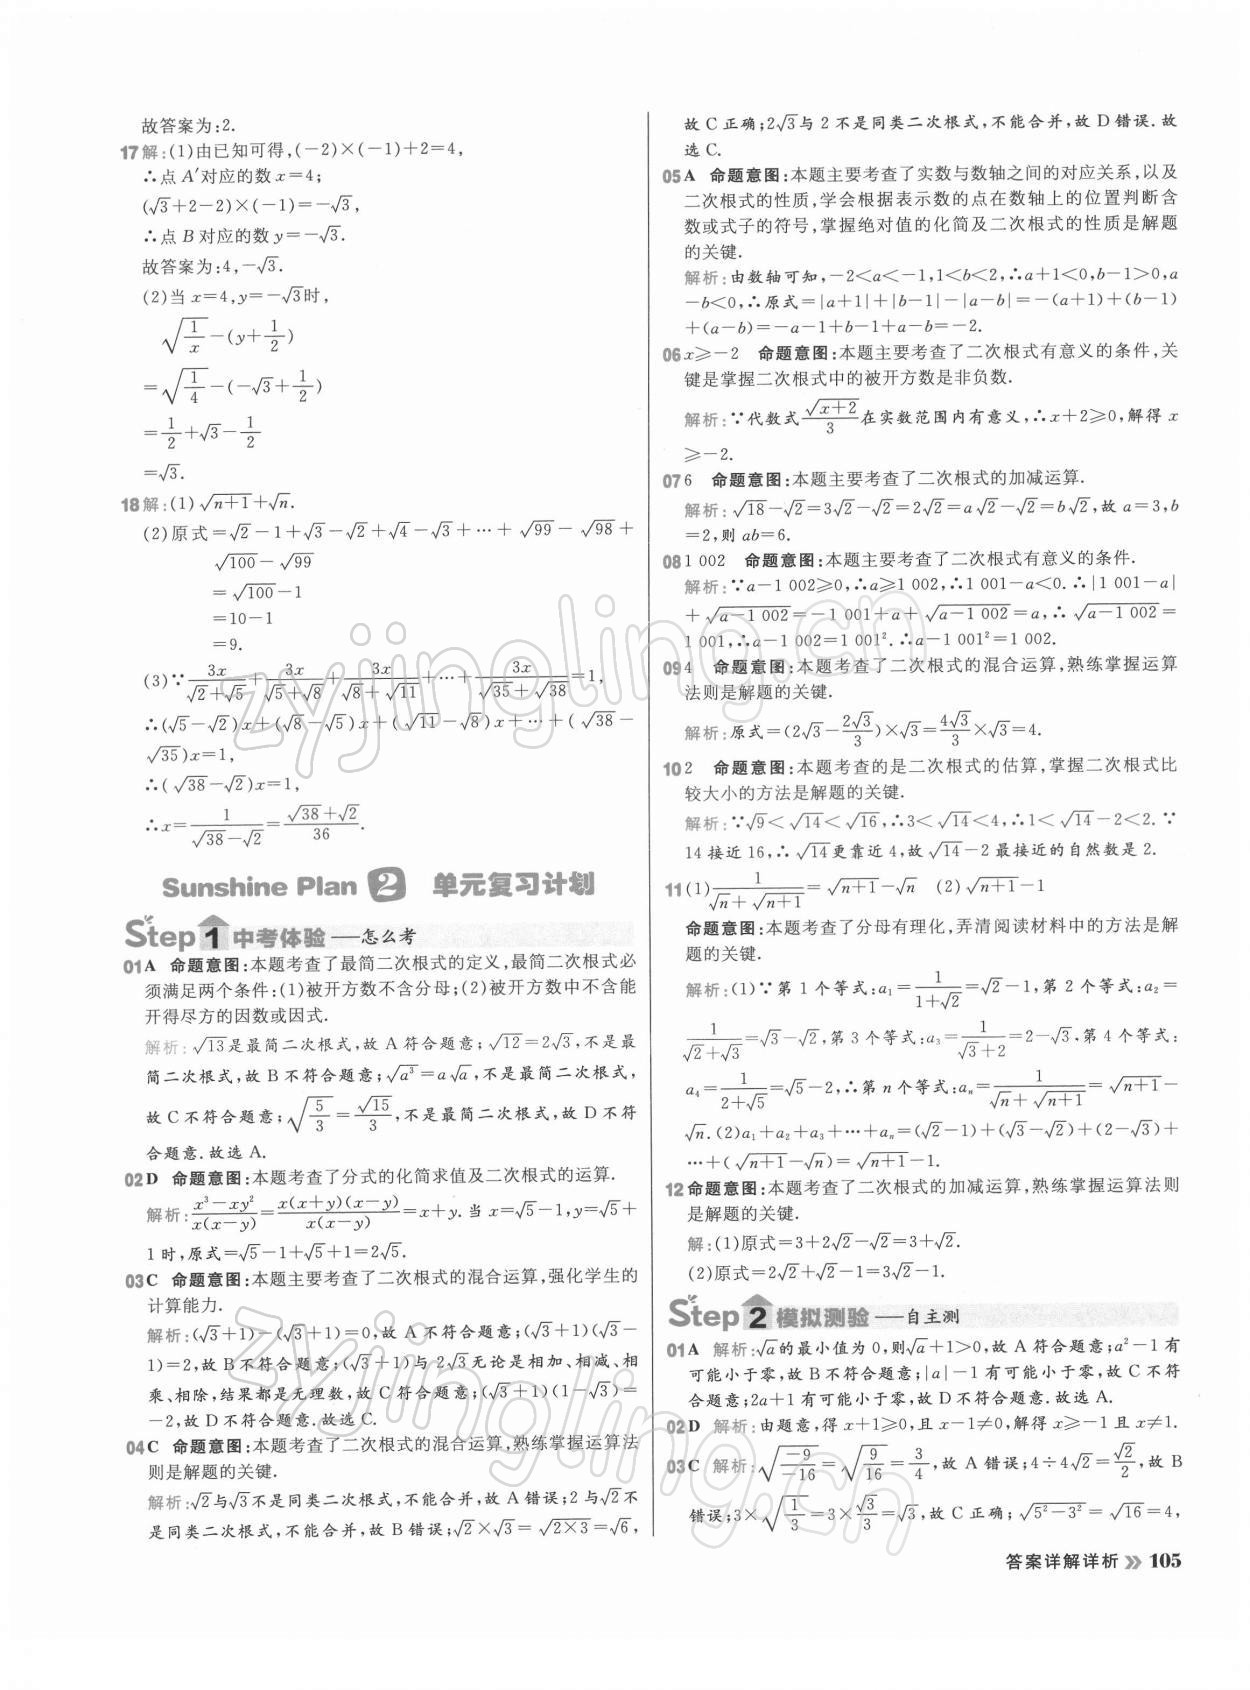 故答案为:2.
17解:(1)由已知可得,(−2)×(−1)+2=4,
∴点A′对应的数x=4;
(√3+2−2)×(−1)=−√3,
∴点B对应的数y=−√3.
故答案为:4,−√3.
(2)当x=4,y=−√3时,
√(1/x)−(y+1/2)
=√(1/4)−(−√3+1/2)
=1/2+√3−1/2
=√3.
18解:(1)√(n+1)+√n.
(2)原式=√2−1+√3−√2+√4−√3+…+√99−√98+
√100−√99
=√100−1
=10−1
=9.
(3)∵3x/(√2+√5)+3x/(√5+√8)+3x/(√8+√11)+…+3x/(√35+√38)=1,
∴(√5−√2)x+(√8−√5)x+(√11−√8)x+…+(√38−
√35)x=1,
∴(√38−√2)x=1,
∴x=1/(√38−√2)=(√38+√2)/36.
Sunshine Plan 2 单元复习计划
Step 1 中考体验——怎么考
01A 命题意图:本题考查了最简二次根式的定义,最简二次根式必
须满足两个条件:(1)被开方数不含分母;(2)被开方数中不含能
开得尽方的因数或因式.
解析:√13是最简二次根式,故A符合题意;√12=2√3,不是最
简二次根式,故B不符合题意;√(a³)=a√a,不是最简二次根式,
故C不符合题意;√(5/3)=√15/3,不是最简二次根式,故D不符
合题意.故选A.
02D 命题意图:本题考查了分式的化简求值及二次根式的运算.
解析:(x³−xy²)/(x(x−y))=x(x+y)(x−y)/(x(x−y))=x+y.当x=√5−1,y=√5+
1时,原式=√5−1+√5+1=2√5.
03C 命题意图:本题主要考查了二次根式的混合运算,强化学生的
计算能力.
解析:(√3+1)−(√3+1)=0,故A不符合题意;(√3+1)(√3−
1)=2,故B不符合题意;(√3+1)与2√3无论是相加、相减、相
乘、相除,结果都是无理数,故C符合题意;(√3+1)(1−√3)=
−2,故D不符合题意.故选C.
04C 命题意图:本题考查了二次根式的混合运算,熟练掌握运算法
则是解题的关键.
解析:√2与√3不是同类二次根式,不能合并,故A错误;2与√2不
是同类二次根式,不能合并,故B错误;√2×√3=√(2×3)=√6,
故C正确;2√3与2不是同类二次根式,不能合并,故D错误.故
选C.
05A 命题意图:本题主要考查了实数与数轴之间的对应关系,以及
二次根式的性质,学会根据表示数的点在数轴上的位置判断含
数或式子的符号,掌握绝对值的化简及二次根式的性质是解题
的关键.
解析:由数轴可知,−2<a<−1,1<b<2,∴a+1<0,b−1>0,a
−b<0,∴原式=|a+1|+|b−1|−|a−b|=−(a+1)+(b−1)
+(a−b)=−a−1+b−1+a−b=−2.
06x≥−2 命题意图:本题主要考查了二次根式有意义的条件,关
键是掌握二次根式中的被开方数是非负数.
解析:∵代数式√(x+2)/3在实数范围内有意义,∴x+2≥0,解得x
≥−2.
076 命题意图:本题主要考查了二次根式的加减运算.
解析:√18−√2=3√2−√2=2√2=a√2−√2=b√2,故a=3,b
=2,则ab=6.
081 002 命题意图:本题主要考查了二次根式有意义的条件.
解析:∵a−1 002≥0,∴a≥1 002,∴1 001−a<0.∴|1 001−a|
+√(a−1 002)=−1 001+a+√(a−1 002)=a,∴√(a−1 002)=
1 001,∴a−1 002=1 001².∴a−1 001²=1 002.
094 命题意图:本题考查了二次根式的混合运算,熟练掌握运算
法则是解题的关键.
解析:原式=(2√3−2√3/3)×√3=4√3/3×√3=4.
102 命题意图:本题考查的是二次根式的估算,掌握二次根式比
较大小的方法是解题的关键.
解析:∵√9<√14<√16,∴3<√14<4,∴1<√14−2<2.∵
14接近16,∴√14更靠近4,故√14−2最接近的自然数是2.
11(1)1/(√n+√(n+1))=√(n+1)−√n (2)√(n+1)−1
命题意图:本题考查了分母有理化,弄清阅读材料中的方法是解
题的关键.
解析:(1)∵第1个等式:a₁=1/(1+√2)=√2−1,第2个等式:a₂=
1/(√2+√3)=√3−√2,第3个等式:a₃=1/(√3+2)=2−√3,第4个等式:
a₄=1/(2+√5)=√5−2,∴第n个等式:aₙ=1/(√n+√(n+1))=√(n+1)−
√n.(2)a₁+a₂+a₃+…+aₙ=(√2−1)+(√3−√2)+(2−√3)+
…+(√(n+1)−√n)=√(n+1)−1.
12命题意图:本题考查了二次根式的加减运算,熟练掌握运算法则
是解题的关键.
解:(1)原式=3+2√2−√2=3+√2.
(2)原式=2√2+√2−1=3√2−1.
Step 2 模拟测验——自主测
01A 解析:√a的最小值为0,则√a+1>0,故A符合题意;a²−1有
可能小于零,故B不符合题意;|a|−1有可能小于零,故C不符
合题意;2a+1有可能小于零,故D不符合题意.故选A.
02D 解析:由题意,得x+1≥0,且x−1≠0,解得x≥−1且x≠1.
03C 解析:√(−9/−16)=√(9/16)=3/4,故A错误;4÷4√2=√2/2,故B
错误;3×√(1/3)=3×√3/3=√3,故C正确;√(5²−3²)=√16=4,
答案详解详析 105
zyjingling.cn
zyjingling.cn